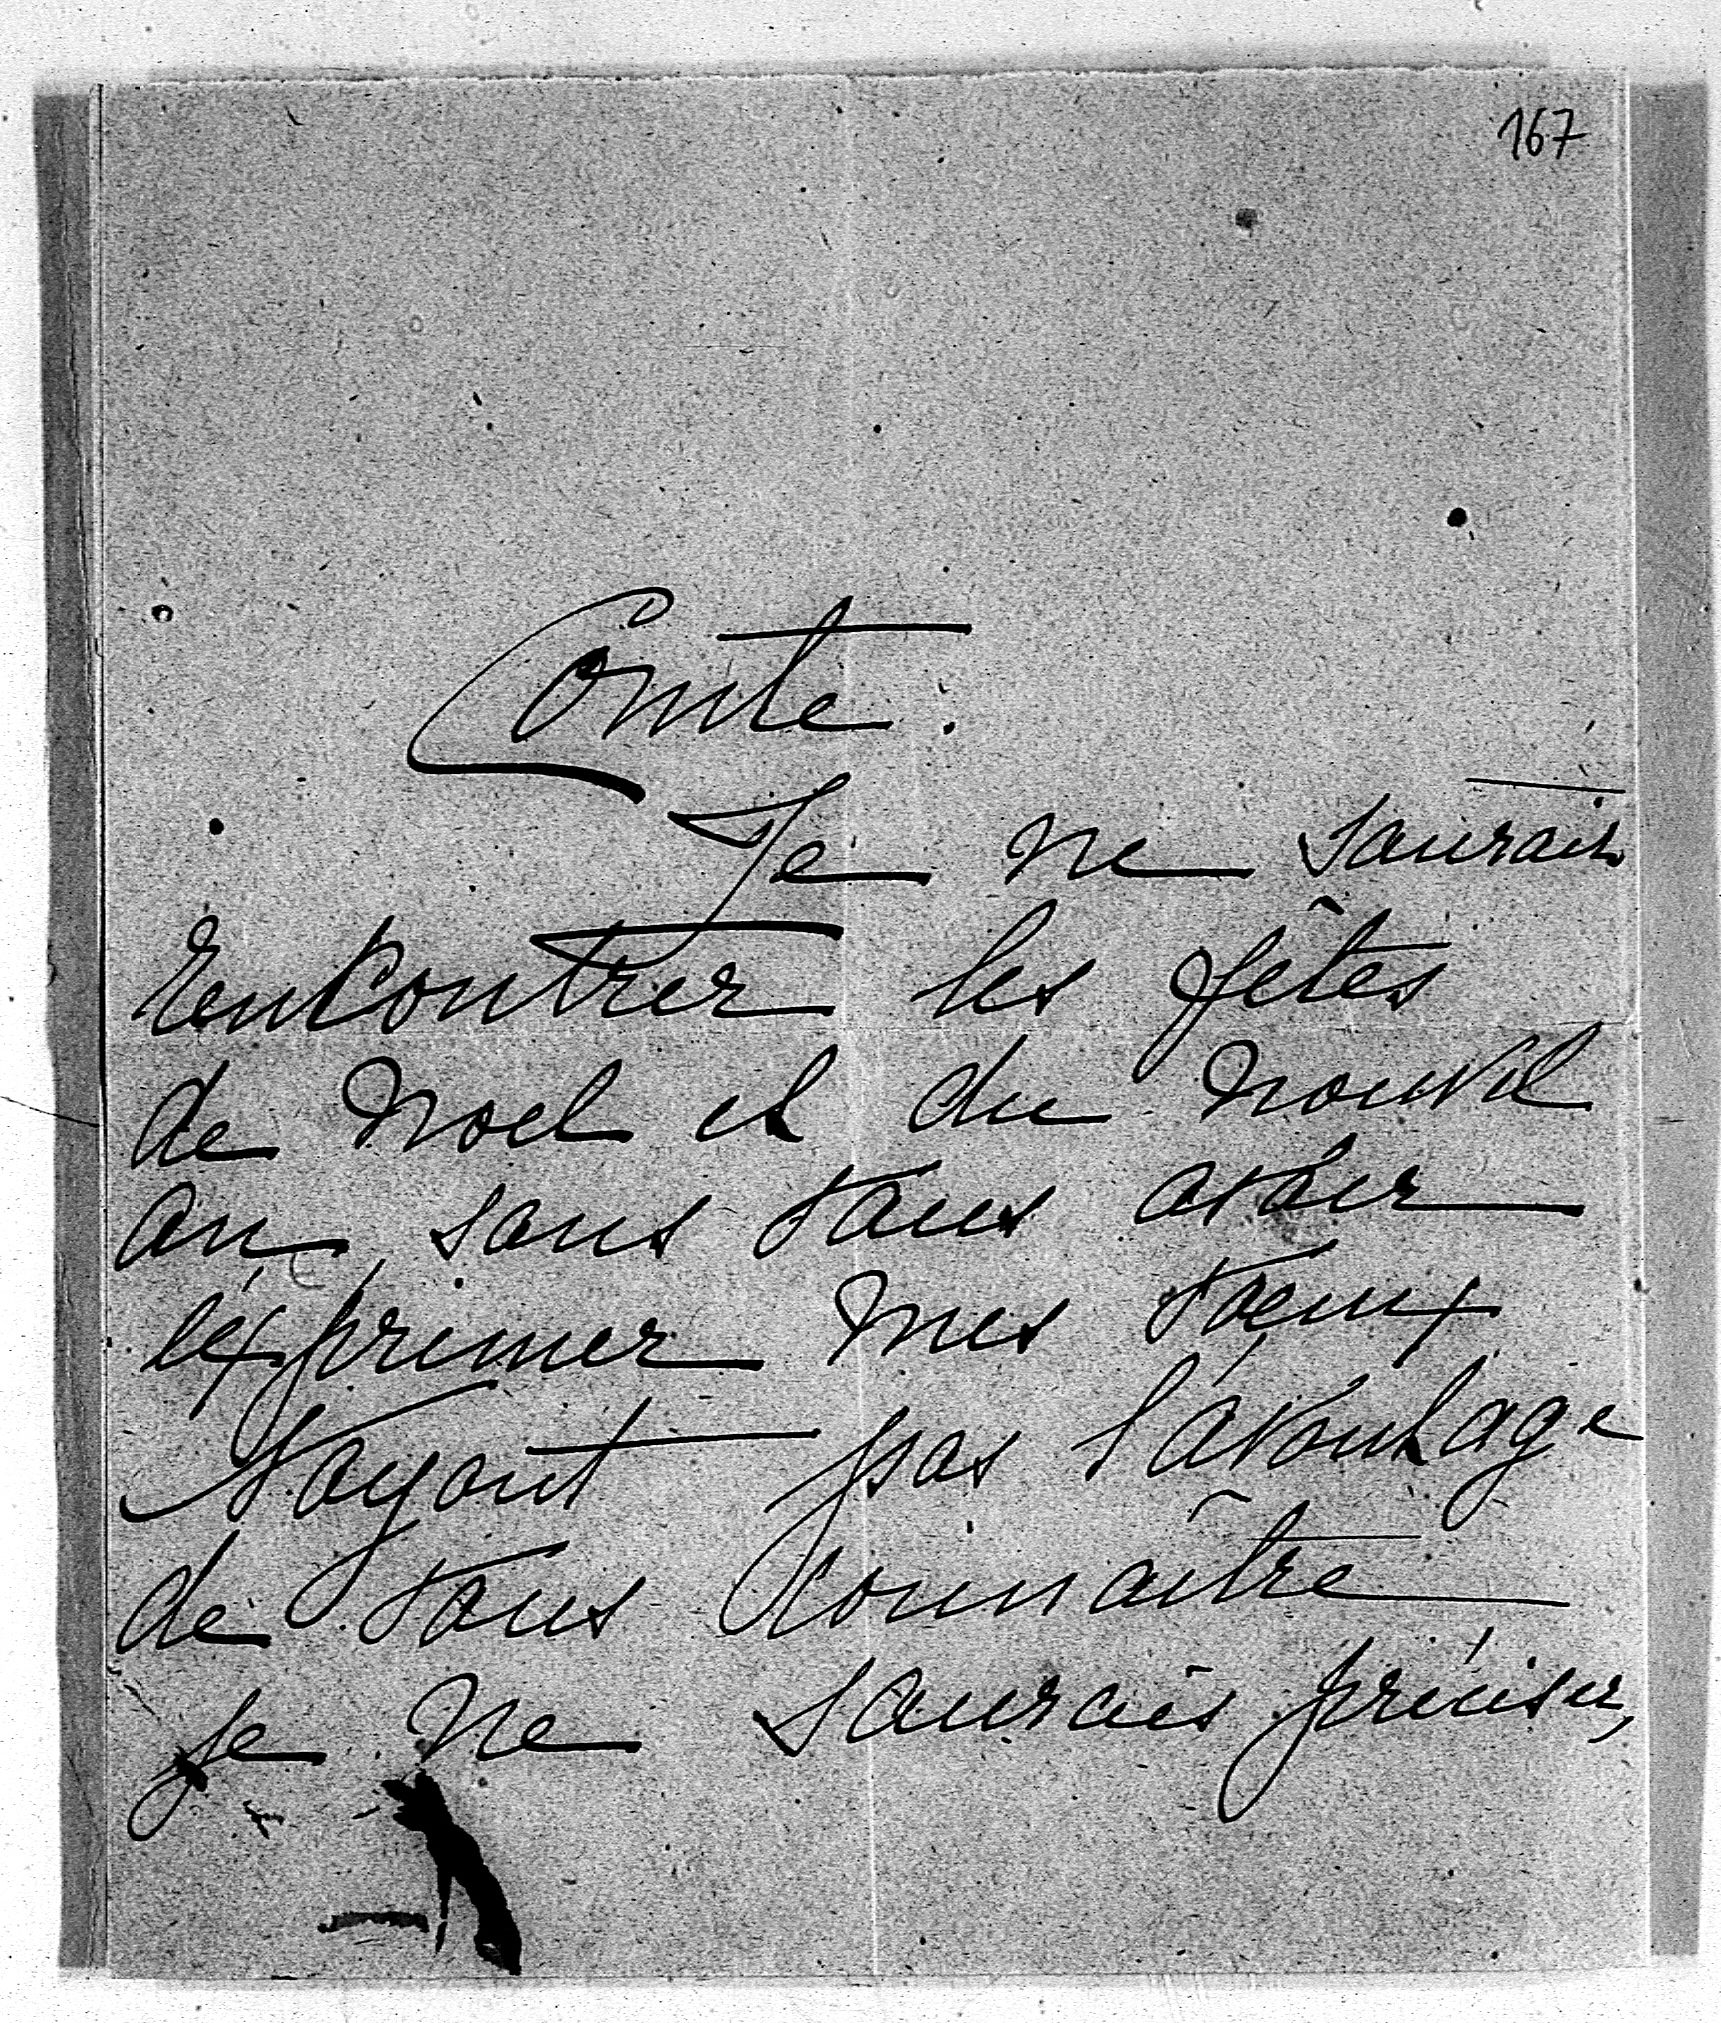 167
Comte.
Je ne saurais
rencontrer les fêtes
de Noel et du nouvel
an, sans vous avoir
éxprimer mes vœux
N'ayant pas l'avantage
de vous connaître
je ne saurais préciser,